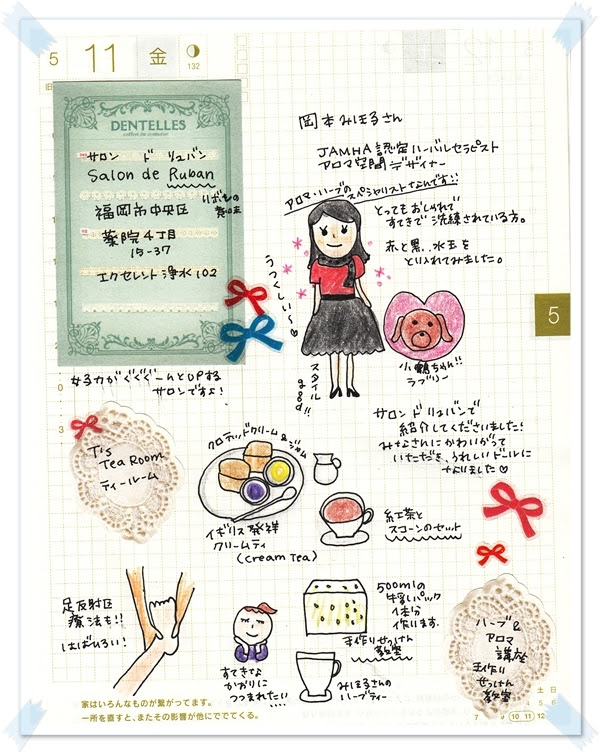 5 11 金
132
DENTELLES
サロン ド リュバン
Salon de Ruban
福岡市中央区
薬院4丁目
15-37
エクセレント浄水102
岡本みほ子さん
JAMHA認定ハーバルセラピスト
アロマ空間デザイナー
アロマ・ハーブのスペシャリストなんです!!
とってもおしゃれで
すてきで洗練されている方。
赤と黒、水玉を
とり入れてみました。
うつくしい〜♡
スタイル
good!!
小鶴ちゃん!!
ラブリー
5
女子力がぐぐぐーんとUPする
サロンですよ!
サロンドリュバンで
紹介してくださいました!
みなさんにかわいがって
いただき、うれしいドールに
なりました♡
T's
Tea Room
ティールーム
クロテッドクリーム&ジャム
イギリス発祥
クリームティ
(cream tea)
紅茶と
スコーンのセット
足反射区
療法も!!
はばひろい!
すてきな
かおりに
つつまれたい....
500mlの
牛乳パック
1本分
作ります.
手作りせっけん
教室
みほ子さんの
ハーブティー
ハーブ&
アロマ
講座
手作り
せっけん
教室
家はいろんなものが繋がってます。
一所を直すと、またその影響が他にでてくる。
土 日
5 6
10 11 12